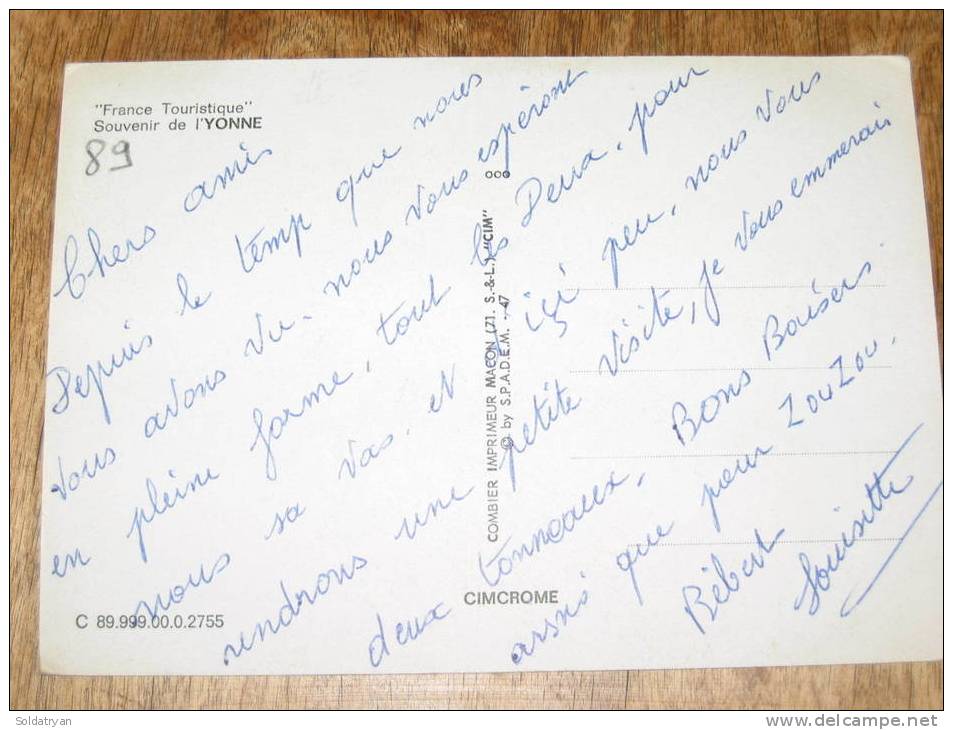 "France Touristique"
Souvenir de l'YONNE
89
Chers amis
Depuis le temp que nous
vous avons vu. nous vous espéront
en pleine forme, tout les Deux, pour
nous sa vas. et d'içi peu, nous vous
rendrons une petite visite, je vous emmerais
deux tonneaux, Bons Baisers
arsni que pour ZouZou.
Bébert
Louisette
COMBIER IMPRIMEUR MACON (71. S.-&-L.) "CIM"
© by S.P.A.D.E.M. - 47
CIMCROME
C 89.999.00.0.2755
Soldatryan
www.delcampe.net